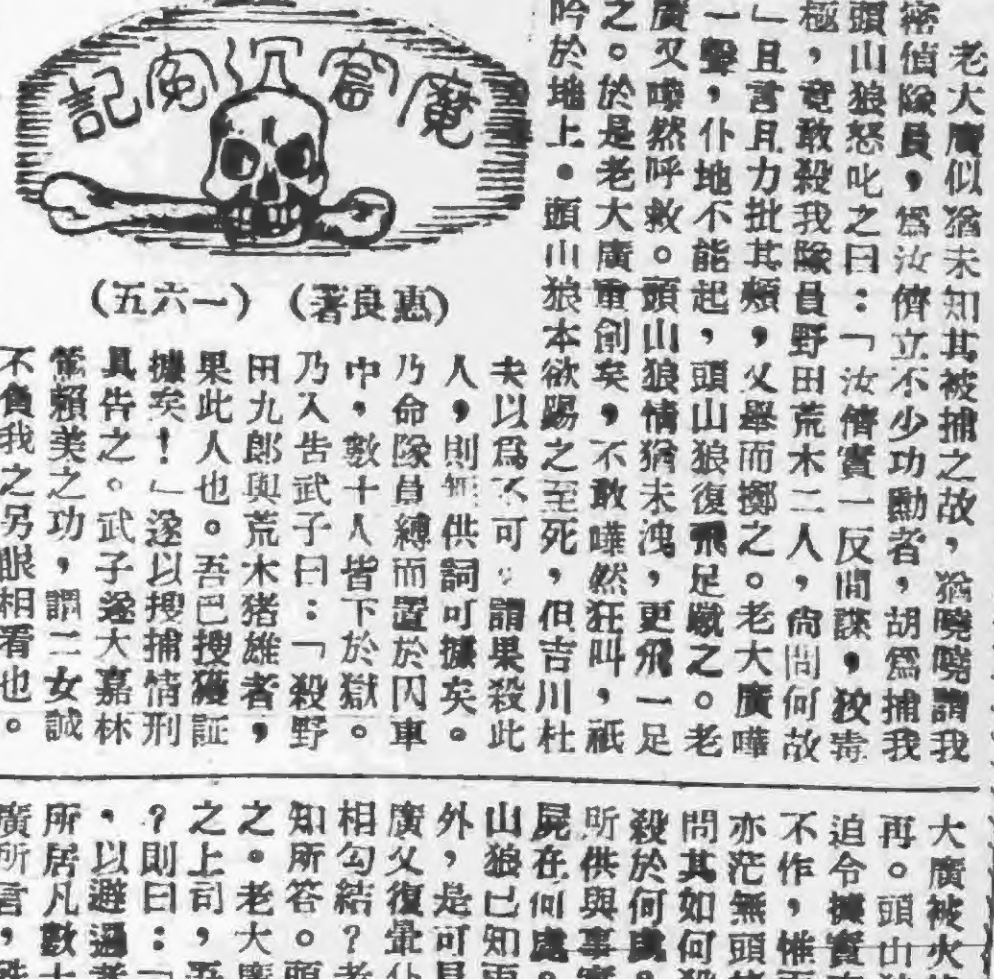 魔窟沉寃記
(惠良著)
(一六五)
老大廣似猶未知其被捕之故,猶曉曉謂我
密偵隊員,爲汝儕立不少功勳者,胡爲捕我
頭山狼怒叱之曰:「汝儕實一反間諜,狡毒
極,竟敢殺我隊員野田荒木二人,尙問何故
」且言且力批其頰,父舉而擲之。老大廣嘩
一聲,仆地不能起,頭山狼復飛足蹴之。老
廣又嘩然呼救。頭山狼情猶未洩,更飛一足
之。於是老大廣重創矣,不敢嘩然狂叫,祇
吟於地上。頭山狼本欲踢之至死,但吉川杜
夫以爲不可。謂果殺此
人,則無供詞可據矣。
乃命隊員縛而置於囚車
中,數十人皆下於獄。
乃入告武子曰:「殺野
田九郎與荒木猪雄者,
果此人也。吾巴搜獲証
據矣!」遂以搜捕情刑
具告之。武子遂大嘉林
賴美之功,謂二女誠
不負我之另眼相看也。
大廣被火
再。頭山
迫令據實
不作,惟
亦茫無頭
問其如何
殺於何處。
所供與事實
屍在何處。
山狼已知
外,是可
廣父復暈仆
相勾結?老
知所答。頭
之。老大廣
之上司,吾
?則曰:「
,以避過
所居凡數
廣所言,